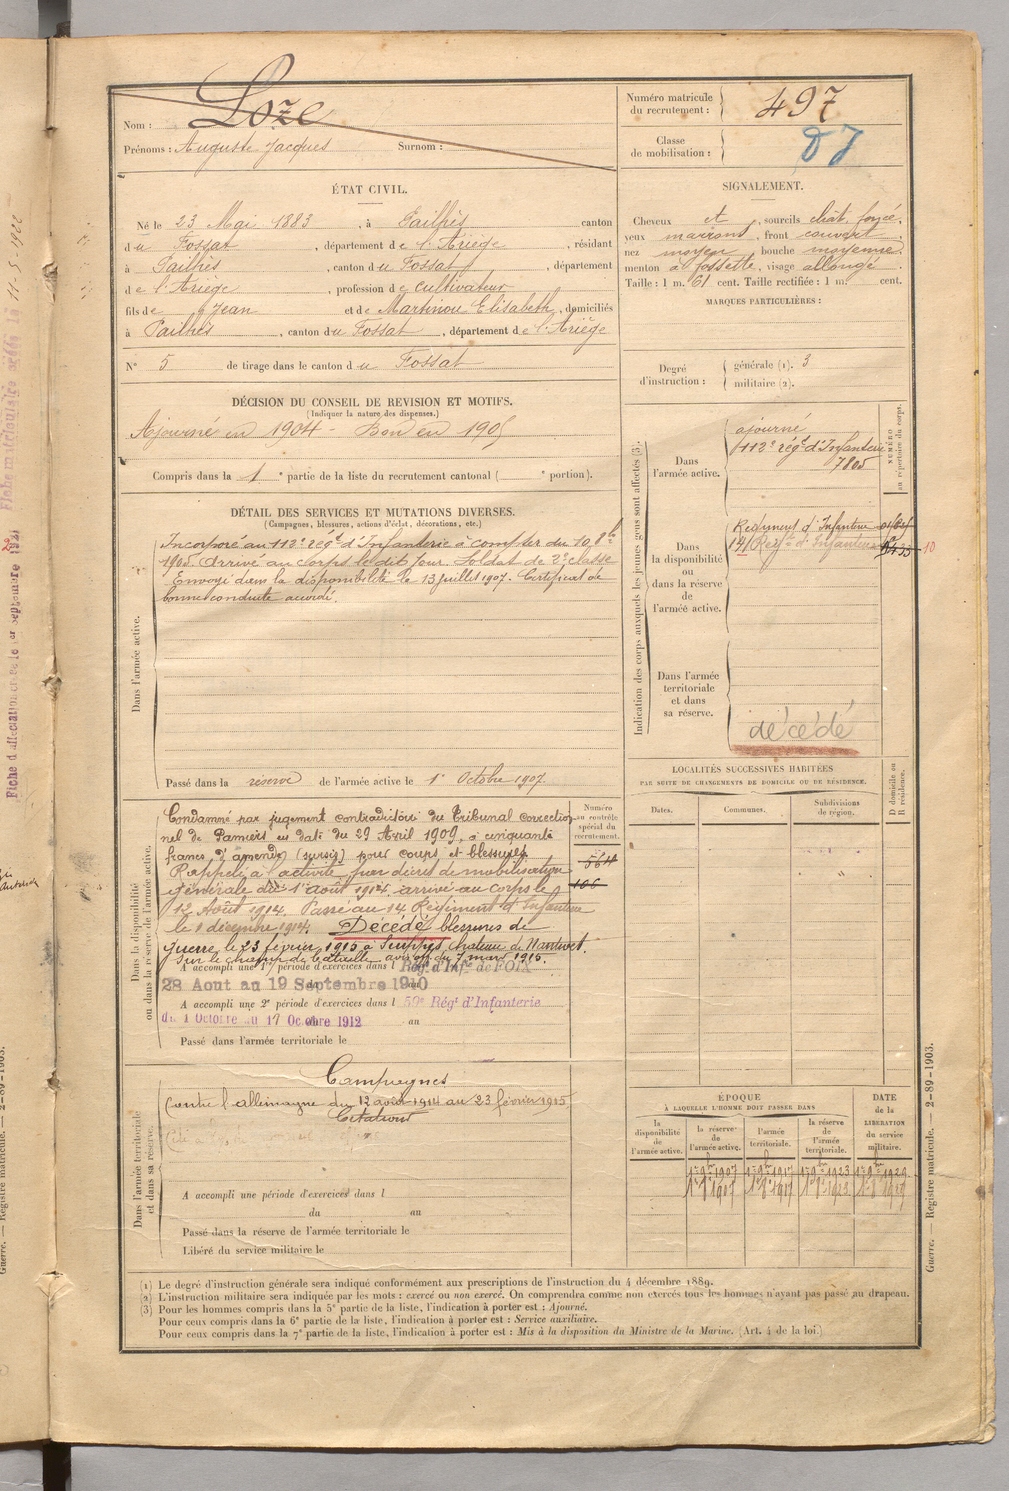 Nom : Loze
Prénoms : Auguste Jacques Surnom :
Numéro matricule du recrutement : 497
Classe de mobilisation :
ÉTAT CIVIL.
Né le 23 Mai 1883, à Pailhès canton
du Fossat, département de l'Ariège, résidant
à Pailhès, canton du Fossat, département
de l'Ariège, profession de cultivateur
fils de Jean et de Martinou Elisabeth, domiciliés
à Pailhès, canton du Fossat, département de l'Ariège
N° 5 de tirage dans le canton du Fossat
SIGNALEMENT.
Cheveux et, sourcils chât. foncé,
yeux marrons, front couvert
nez moyen bouche moyenne
menton à fossette, visage allongé.
Taille : 1 m. 61 cent. Taille rectifiée : 1 m. cent.
MARQUES PARTICULIÈRES :
Degré d'instruction : générale (1). 3
militaire (2).
DÉCISION DU CONSEIL DE REVISION ET MOTIFS.
(Indiquer la nature des dispenses.)
Ajourné en 1904 - Bon en 1905
Compris dans la 1 e partie de la liste du recrutement cantonal ( e portion).
DÉTAIL DES SERVICES ET MUTATIONS DIVERSES.
(Campagnes, blessures, actions d'éclat, décorations, etc.)
Dans l'armée active.
Incorporé au 112e rég.t d'Infanterie à compter du 10 8bre
1905. Arrivé au corps le dit jour. Soldat de 2e classe
Envoyé dans la disponibilité le 13 juillet 1907. Certificat de
bonne conduite accordé.
Passé dans la réserve de l'armée active le 1er Octobre 1907.
Indication des corps auxquels les jeunes gens sont affectés (3).
NUMÉRO au répertoire du corps.
Dans l'armée active.
ajourné
112e rég.t d'Infanterie
7805
Dans la disponibilité ou dans la réserve de l'armée active.
Régiment d'Infanterie
141 Reg.t d'Infanterie
10
Dans l'armée territoriale et dans sa réserve.
décédé
LOCALITÉS SUCCESSIVES HABITÉES
PAR SUITE DE CHANGEMENTS DE DOMICILE OU DE RÉSIDENCE.
Dates. Communes. Subdivisions de région.
D domicile ou R résidence.
Dans la disponibilité ou dans la réserve de l'armée active.
Numéro au contrôle spécial du recrutement.
564
106
Condamné par jugement contradictoire du Tribunal correction-
nel de Pamiers en date du 29 Avril 1909, à cinquante
francs d'amende (sursis) pour coups et blessures
Rappelé à l'activité par décret de mobilisation
générale du 1er août 1914 arrivé au corps le
12 Août 1914. Passé au 14 Régiment d'Infanterie
le 1 décembre 1914. Décédé blessures de
guerre le 23 février 1915 à Suippes, chateau de Nantivet.
Sur le champ de bataille avis off. du 7 mars 1915.
A accompli une 1re période d'exercices dans l Rég. d'Inf.ie de FOIX
28 Aout au 19 Septembre 1910
A accompli une 2e période d'exercices dans l 59e Régt d'Infanterie
du 1 Octobre au 17 Octobre 1912 au
Passé dans l'armée territoriale le
Dans l'armée territoriale et dans sa réserve.
Campagnes
Contre l'allemagne du 12 août 1914 au 23 février 1915
Citations
A accompli une période d'exercices dans l
du au
Passé dans la réserve de l'armée territoriale le
Libéré du service militaire le
ÉPOQUE
À LAQUELLE L'HOMME DOIT PASSER DANS
la disponibilité de l'armée active.
la réserve de l'armée active.
l'armée territoriale.
la réserve de l'armée territoriale.
DATE de la LIBÉRATION du service militaire.
(1) Le degré d'instruction générale sera indiqué conformément aux prescriptions de l'instruction du 4 décembre 1889.
(2) L'instruction militaire sera indiquée par les mots : exercé ou non exercé. On comprendra comme non exercés tous les hommes n'ayant pas passé au drapeau.
(3) Pour les hommes compris dans la 5e partie de la liste, l'indication à porter est : Ajourné.
Pour ceux compris dans la 6e partie de la liste, l'indication à porter est : Service auxiliaire.
Pour ceux compris dans la 7e partie de la liste, l'indication à porter est : Mis à la disposition du Ministre de la Marine. (Art. 4 de la loi.)
Guerre. — Registre matricule. — 2-89-1903.